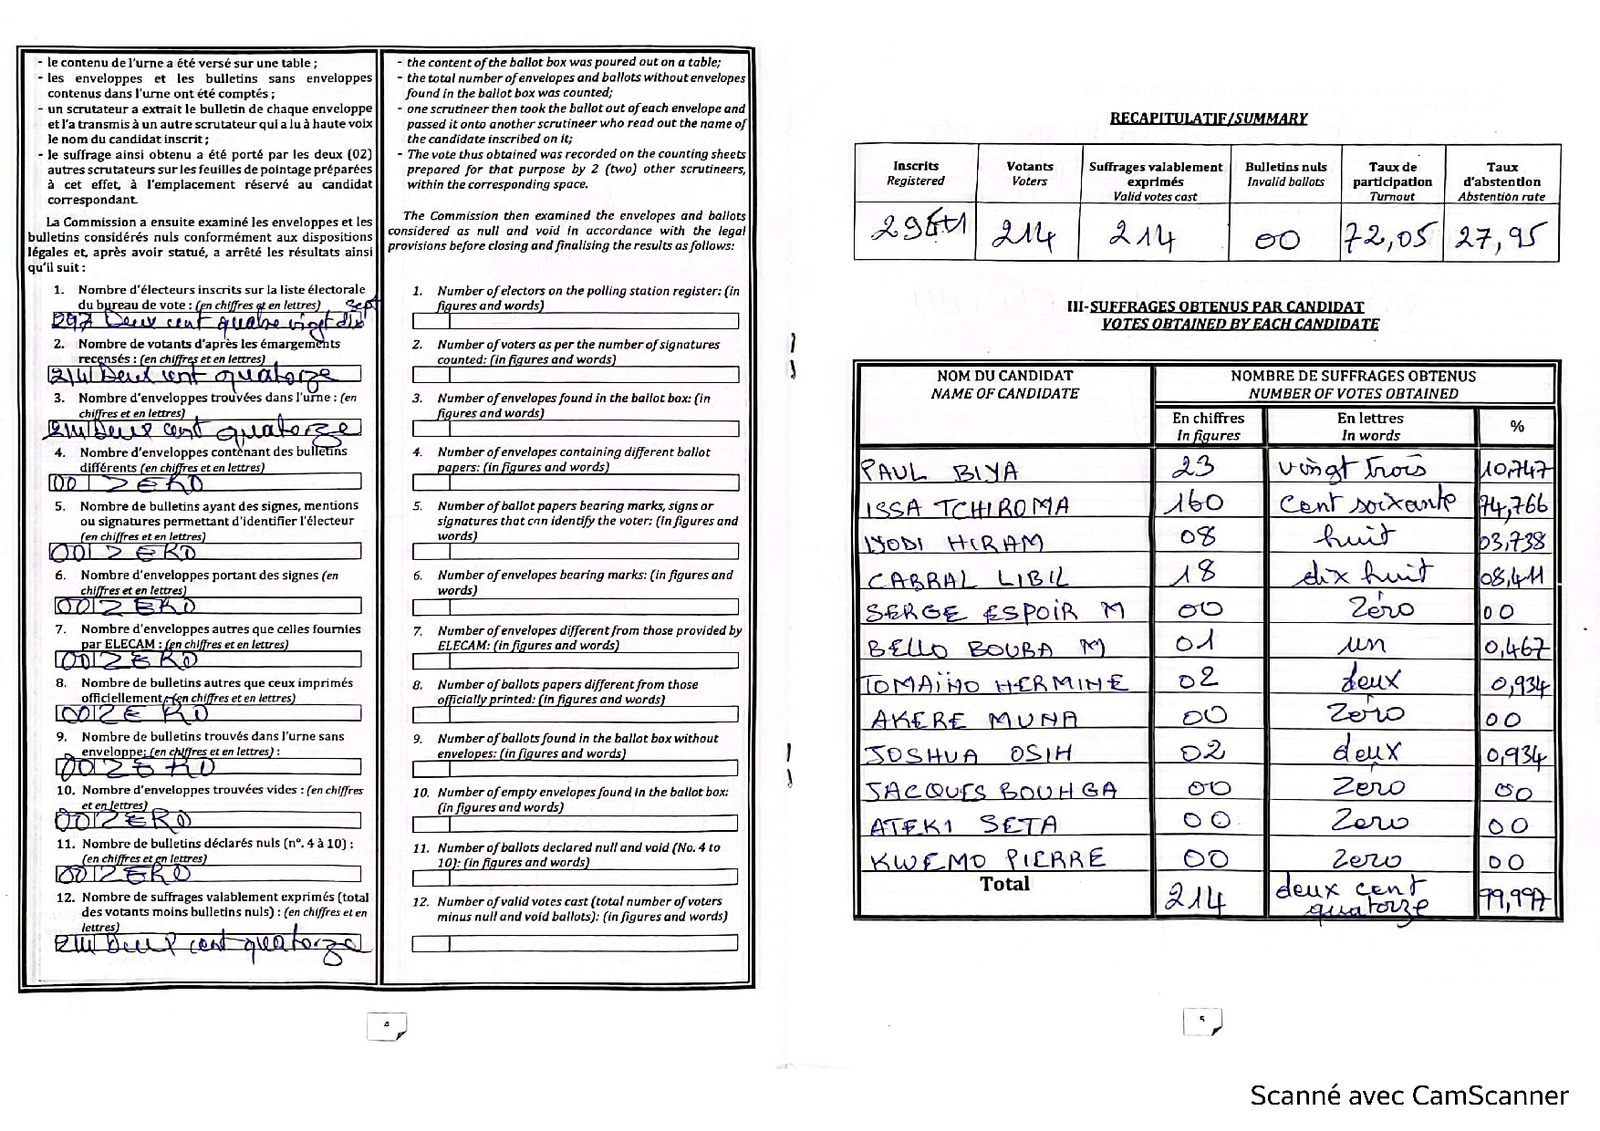 - le contenu de l'urne a été versé sur une table ;
- les enveloppes et les bulletins sans enveloppes
contenus dans l'urne ont été comptés ;
- un scrutateur a extrait le bulletin de chaque enveloppe
et l'a transmis à un autre scrutateur qui a lu à haute voix
le nom du candidat inscrit ;
- le suffrage ainsi obtenu a été porté par les deux (02)
autres scrutateurs sur les feuilles de pointage préparées
à cet effet, à l'emplacement réservé au candidat
correspondant.
La Commission a ensuite examiné les enveloppes et les
bulletins considérés nuls conformément aux dispositions
légales et, après avoir statué, a arrêté les résultats ainsi
qu'il suit :
1. Nombre d'électeurs inscrits sur la liste électorale
du bureau de vote : (en chiffres et en lettres) sept
297 Deux cent quatre vingt dix
2. Nombre de votants d'après les émargements
recensés : (en chiffres et en lettres)
214 Deux cent quatorze
3. Nombre d'enveloppes trouvées dans l'urne : (en
chiffres et en lettres)
214 Deux cent quatorze
4. Nombre d'enveloppes contenant des bulletins
différents (en chiffres et en lettres)
00 ZERO
5. Nombre de bulletins ayant des signes, mentions
ou signatures permettant d'identifier l'électeur
(en chiffres et en lettres)
00 ZERO
6. Nombre d'enveloppes portant des signes (en
chiffres et en lettres)
00 ZERO
7. Nombre d'enveloppes autres que celles fournies
par ELECAM : (en chiffres et en lettres)
00 ZERO
8. Nombre de bulletins autres que ceux imprimés
officiellement : (en chiffres et en lettres)
00 ZERO
9. Nombre de bulletins trouvés dans l'urne sans
enveloppe: (en chiffres et en lettres) :
00 ZERO
10. Nombre d'enveloppes trouvées vides : (en chiffres
et en lettres)
00 ZERO
11. Nombre de bulletins déclarés nuls (n°. 4 à 10) :
(en chiffres et en lettres)
00 ZERO
12. Nombre de suffrages valablement exprimés (total
des votants moins bulletins nuls) : (en chiffres et en
lettres)
214 Deux cent quatorze
- the content of the ballot box was poured out on a table;
- the total number of envelopes and ballots without envelopes
found in the ballot box was counted;
- one scrutineer then took the ballot out of each envelope and
passed it onto another scrutineer who read out the name of
the candidate inscribed on it;
- The vote thus obtained was recorded on the counting sheets
prepared for that purpose by 2 (two) other scrutineers,
within the corresponding space.
The Commission then examined the envelopes and ballots
considered as null and void in accordance with the legal
provisions before closing and finalising the results as follows:
1. Number of electors on the polling station register: (in
figures and words)
2. Number of voters as per the number of signatures
counted: (in figures and words)
3. Number of envelopes found in the ballot box: (in
figures and words)
4. Number of envelopes containing different ballot
papers: (in figures and words)
5. Number of ballot papers bearing marks, signs or
signatures that can identify the voter: (in figures and
words)
6. Number of envelopes bearing marks: (in figures and
words)
7. Number of envelopes different from those provided by
ELECAM: (in figures and words)
8. Number of ballots papers different from those
officially printed: (in figures and words)
9. Number of ballots found in the ballot box without
envelopes: (in figures and words)
10. Number of empty envelopes found in the ballot box:
(in figures and words)
11. Number of ballots declared null and void (No. 4 to
10): (in figures and words)
12. Number of valid votes cast (total number of voters
minus null and void ballots): (in figures and words)
4
RECAPITULATIF/SUMMARY
Inscrits Votants Suffrages valablement Bulletins nuls Taux de Taux
Registered Voters exprimés Invalid ballots participation d'abstention
Valid votes cast Turnout Abstention rate
214 214 00 72,05 27,95
III-SUFFRAGES OBTENUS PAR CANDIDAT
VOTES OBTAINED BY EACH CANDIDATE
NOM DU CANDIDAT NOMBRE DE SUFFRAGES OBTENUS
NAME OF CANDIDATE NUMBER OF VOTES OBTAINED
En chiffres En lettres %
In figures In words
PAUL BIYA 23 vingt trois 10,747
ISSA TCHIROMA 160 cent soixante 74,766
IYODI HIRAM 08 huit 03,738
CABRAL LIBIL 18 dix huit 08,411
SERGE ESPOIR M 00 Zéro 00
BELLO BOUBA M 01 un 0,467
TOMAÏNO HERMINE 02 deux 0,934
AKERE MUNA 00 Zéro 00
JOSHUA OSIH 02 deux 0,934
JACQUES BOUHGA 00 Zéro 00
ATEKI SETA 00 Zero 00
KWEMO PIERRE 00 Zero 00
Total 214 deux cent 99,997
quatorze
5
Scanné avec CamScanner